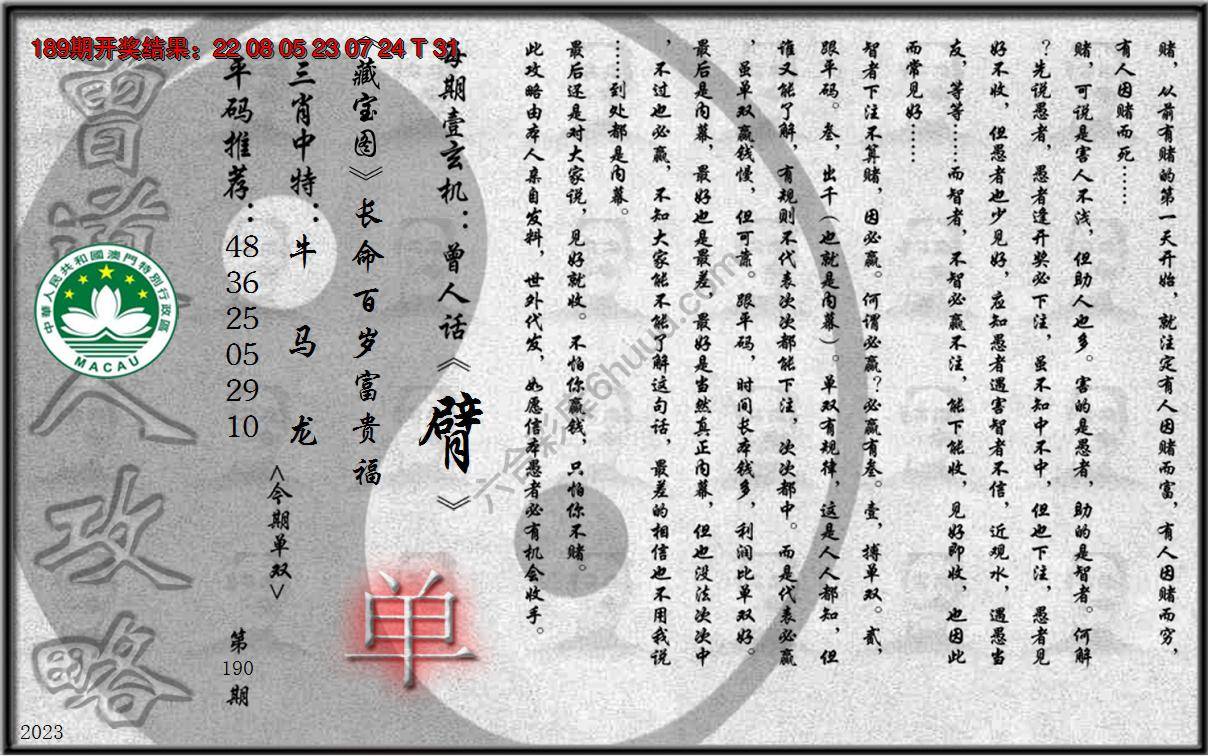 189期开奖结果：22 08 05 23 07 24 T 31
赌，从前有赌的第一天开始，就注定有人因赌而富，有人因赌而穷，
有人因赌而死……
赌，可说是害人不浅，但助人也多。害的是愚者，助的是智者。何解
？先说愚者，愚者逢开奖必下注，虽不知中不中，但也下注，愚者见
好不收，但愚者也少见好，应知愚者遇害智者不信，近观水，遇愚当
友，等等……而智者，不智必赢不注，能下能收，见好即收，也因此
而常见好……
智者下注不算赌，因必赢。何谓必赢？必赢有叁。壹，搏单双。贰，
跟平码。叁，出千（也就是内幕）。单双有规律，这是人人都知，但
谁又能了解，有规则不代表次次都能下注，次次都中。而是代表必赢
，虽单双赢钱慢，但可靠。跟平码，时间长本钱多，利润比单双好。
最后是内幕，最好也是最差，最好是当然真正内幕，但也没法次次中
，不过也必赢，不知大家能不能了解这句话，最差的相信也不用我说
……到处都是内幕。
最后还是对大家说，见好就收。不怕你赢钱，只怕你不赌。
此攻略由本人亲自发料，世外代发，如愿信本愚者必有机会收手。
每期壹玄机：曾人话《臂》
《藏宝图》长命百岁富贵福
三肖中特：牛 马 龙
平码推荐：48 36 25 05 29 10
<今期单双>
单
第190期
曾道人攻略
中華人民共和國澳門特別行政區
MACAU
2023